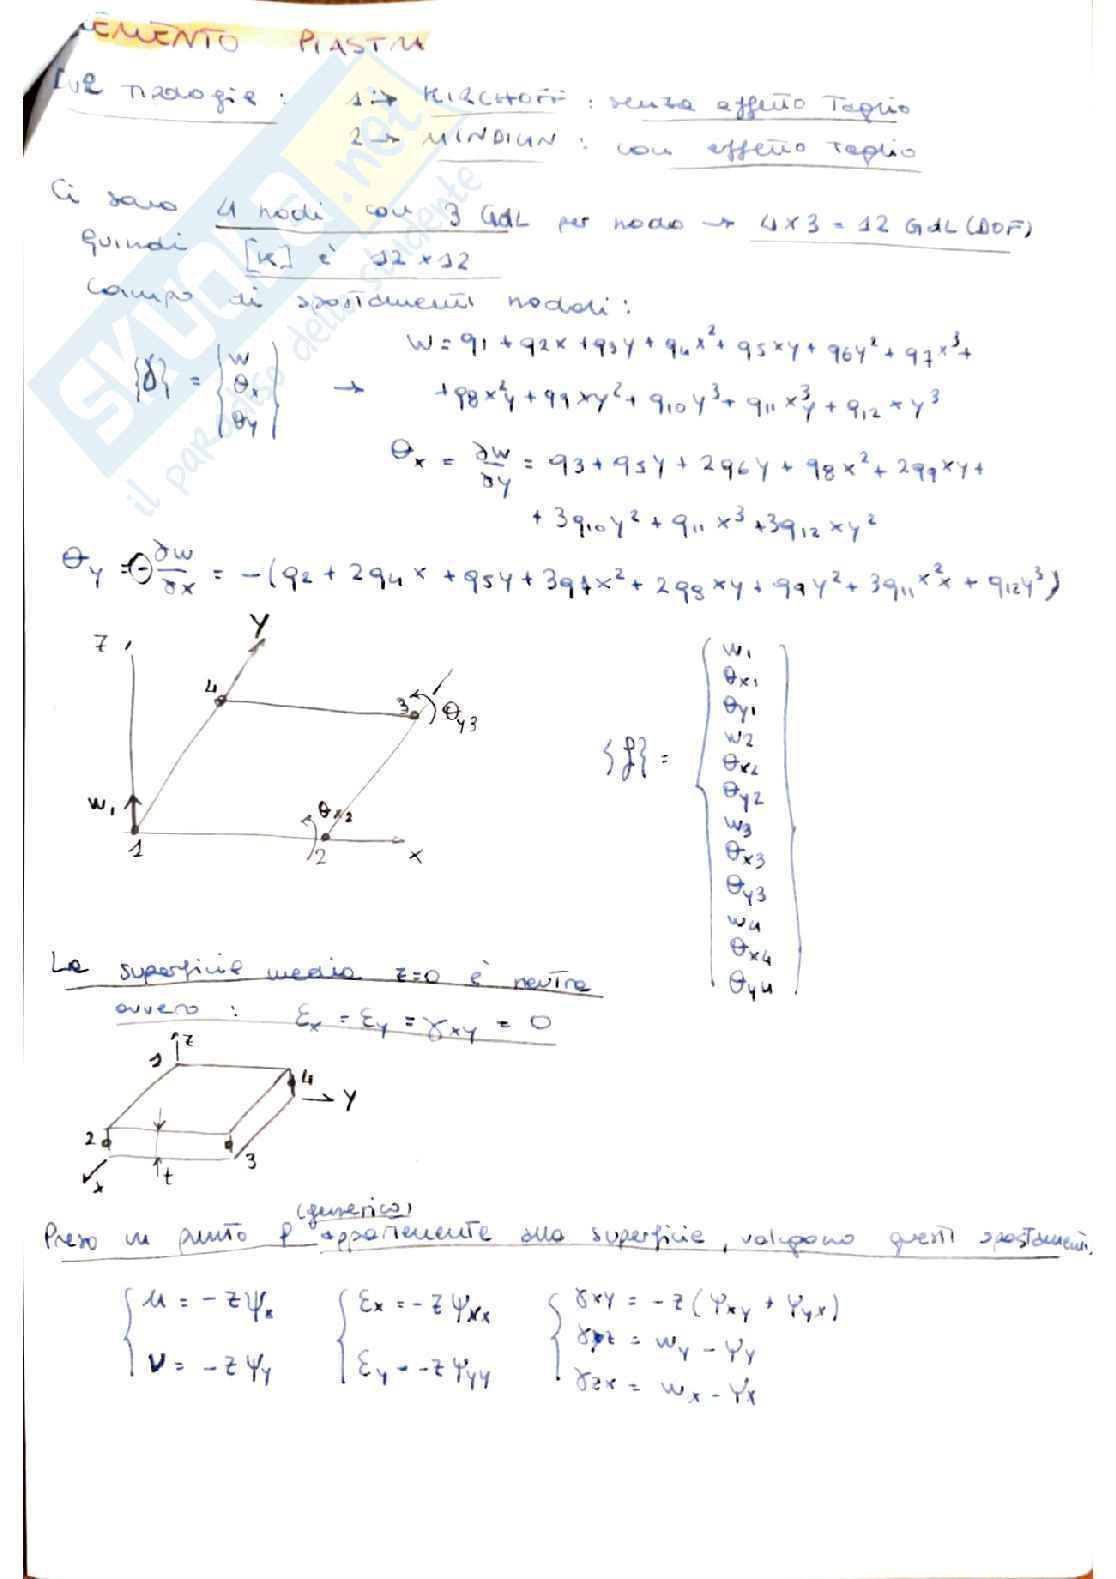 ELEMENTO PIASTRA
Due tipologie : 1 → KIRCHOFF : senza effetto Taglio
2 → MINDLIN : con effetto Taglio
Ci sono 4 nodi con 3 GdL per nodo → 4 x 3 = 12 GdL (DOF)
quindi [K] è 12 x 12
Campo di spostamenti nodali :
{δ} = {w θx θy} →
w = q1 + q2x + q3y + q4x² + q5xy + q6y² + q7x³ +
+ q8x²y + q9xy² + q10y³ + q11x³y + q12xy³
θx = ∂w/∂y = q3 + q5y + 2q6y + q8x² + 2q9xy +
+ 3q10y² + q11x³ + 3q12xy²
θy = - ∂w/∂x = -(q2 + 2q4x + q5y + 3q7x² + 2q8xy + q9y² + 3q11x²x + q12y³)
Z
Y
4
3
θy3
w1
θx2
1
2
x
{f} =
w1
θx1
θy1
w2
θx2
θy2
w3
θx3
θy3
w4
θx4
θy4
La superficie media z=0 è neutra
ovvero : εx = εy = γxy = 0
z
1
4
Y
2
3
x
t
(generico)
Preso un punto P appartenente alla superficie, valgono questi spostamenti,
u = -zψx
εx = -zψxx
γxy = -z(ψxy + ψyx)
v = -zψy
εy = -zψyy
γyz = wy - ψy
γzx = wx - ψx
SKUOLA.net
il paradiso dello studente